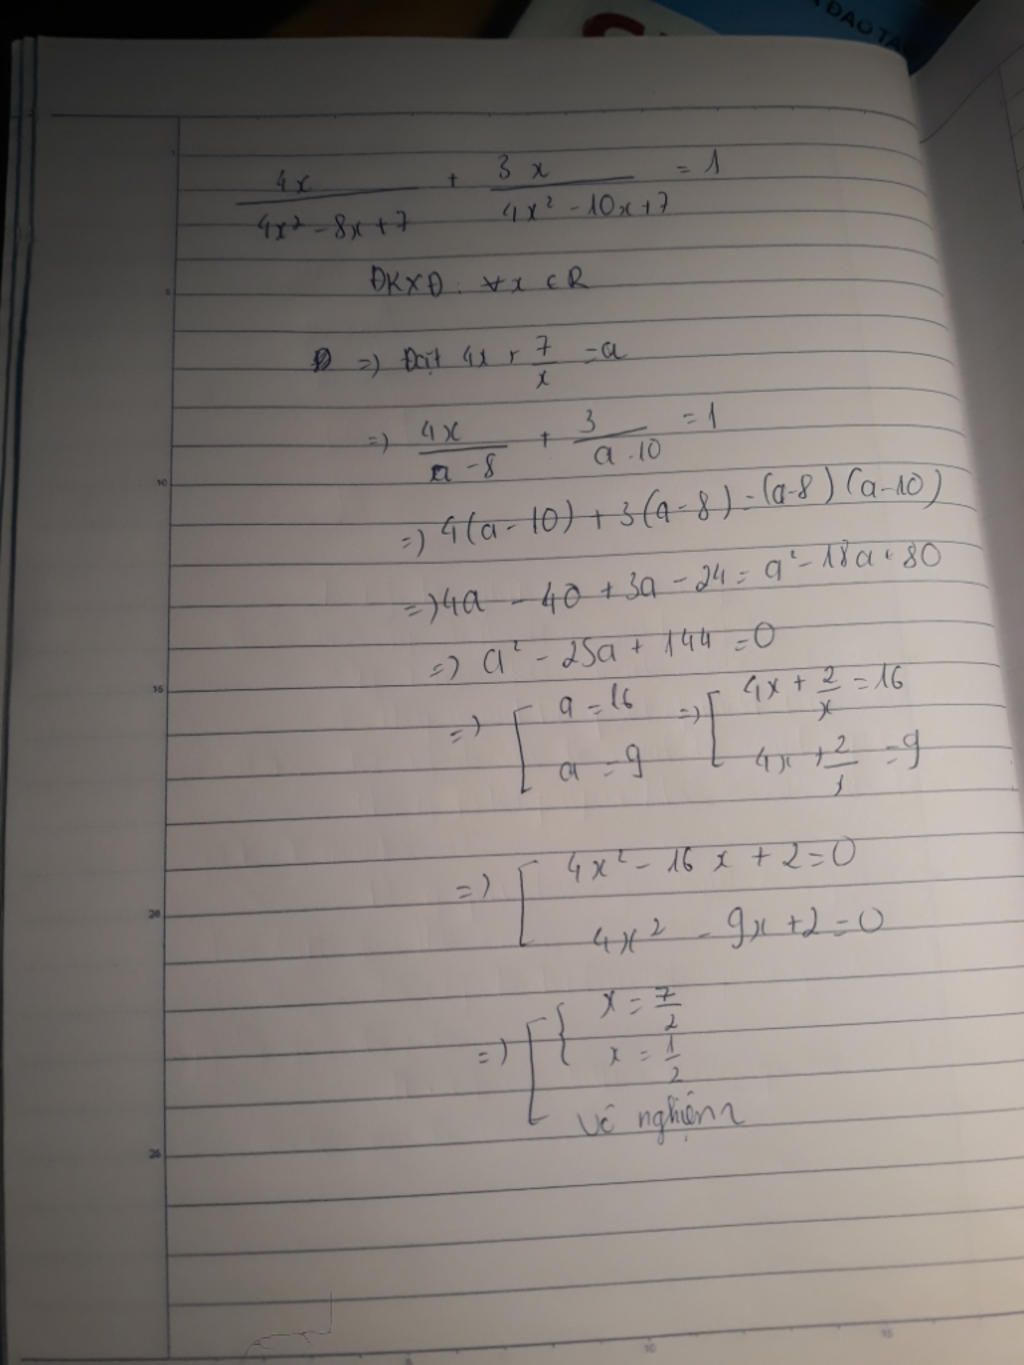 ĐÀO TẠ
4x/(4x² - 8x + 7) + 3x/(4x² - 10x + 7) = 1
ĐKXĐ: ∀x ∈ R
=> Đặt 4x + 7/x = a
=> 4x/(a - 8) + 3/(a - 10) = 1
=> 4(a - 10) + 3(a - 8) = (a - 8)(a - 10)
=> 4a - 40 + 3a - 24 = a² - 18a + 80
=> a² - 25a + 144 = 0
=> [ a = 16 => [ 4x + 2/x = 16
a = 9 4x + 2/x = 9
=> [ 4x² - 16x + 2 = 0
4x² - 9x + 2 = 0
=> [ { x = 7/2
x = 1/2
Vô nghiệm
5
10
15
20
25
5
10
15